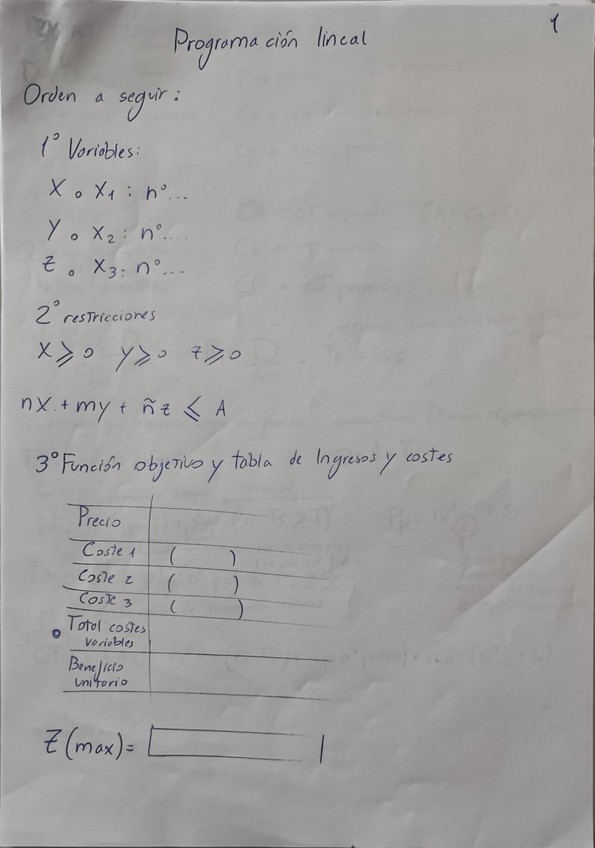 1
Programación lineal
Orden a seguir:
1º Variables:
X o X1: nº...
Y o X2: nº....
Z o X3: nº...
2º restricciones
X ⩾ 0 y ⩾ 0 z ⩾ 0
nx + my + ñz ⩽ A
3º Función objetivo y tabla de Ingresos y costes
Precio
Coste 1 ( )
Coste 2 ( )
Coste 3 ( )
Total costes
variables
Beneficio
unitario
Z (max) =